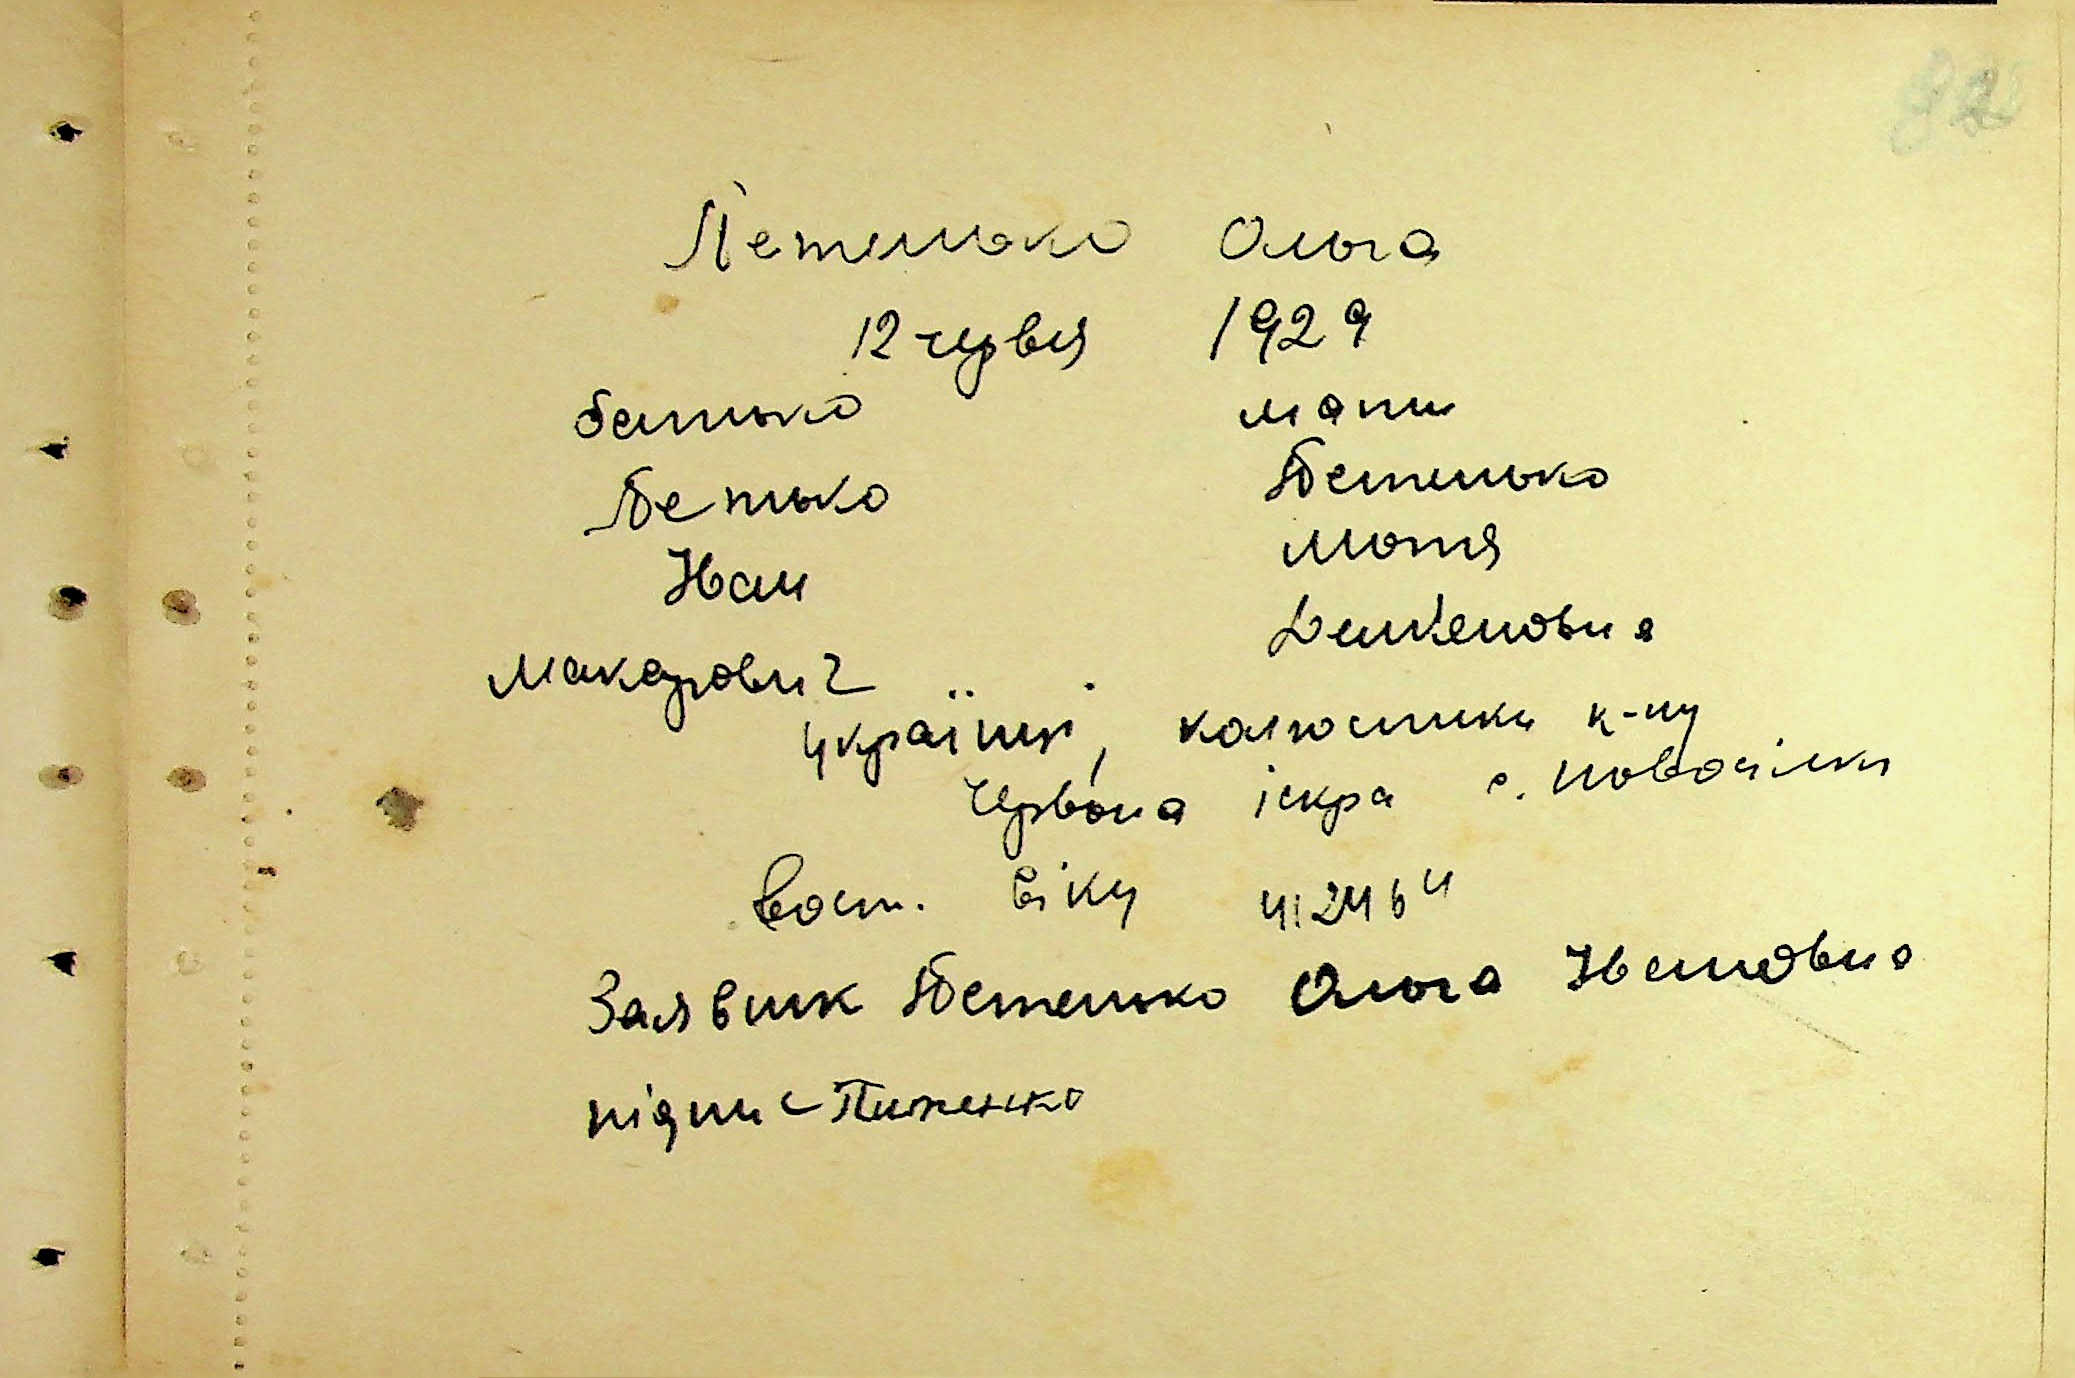 92
Петенько Ольга
12 червня 1929
батько мати
Петько Петенько
Иван Мотя
Макарович
українці, колгоспники к-пу
Червона іскра с. Новосілки
вост. віку
Заявник Петенько Ольга Ивановна
підпис